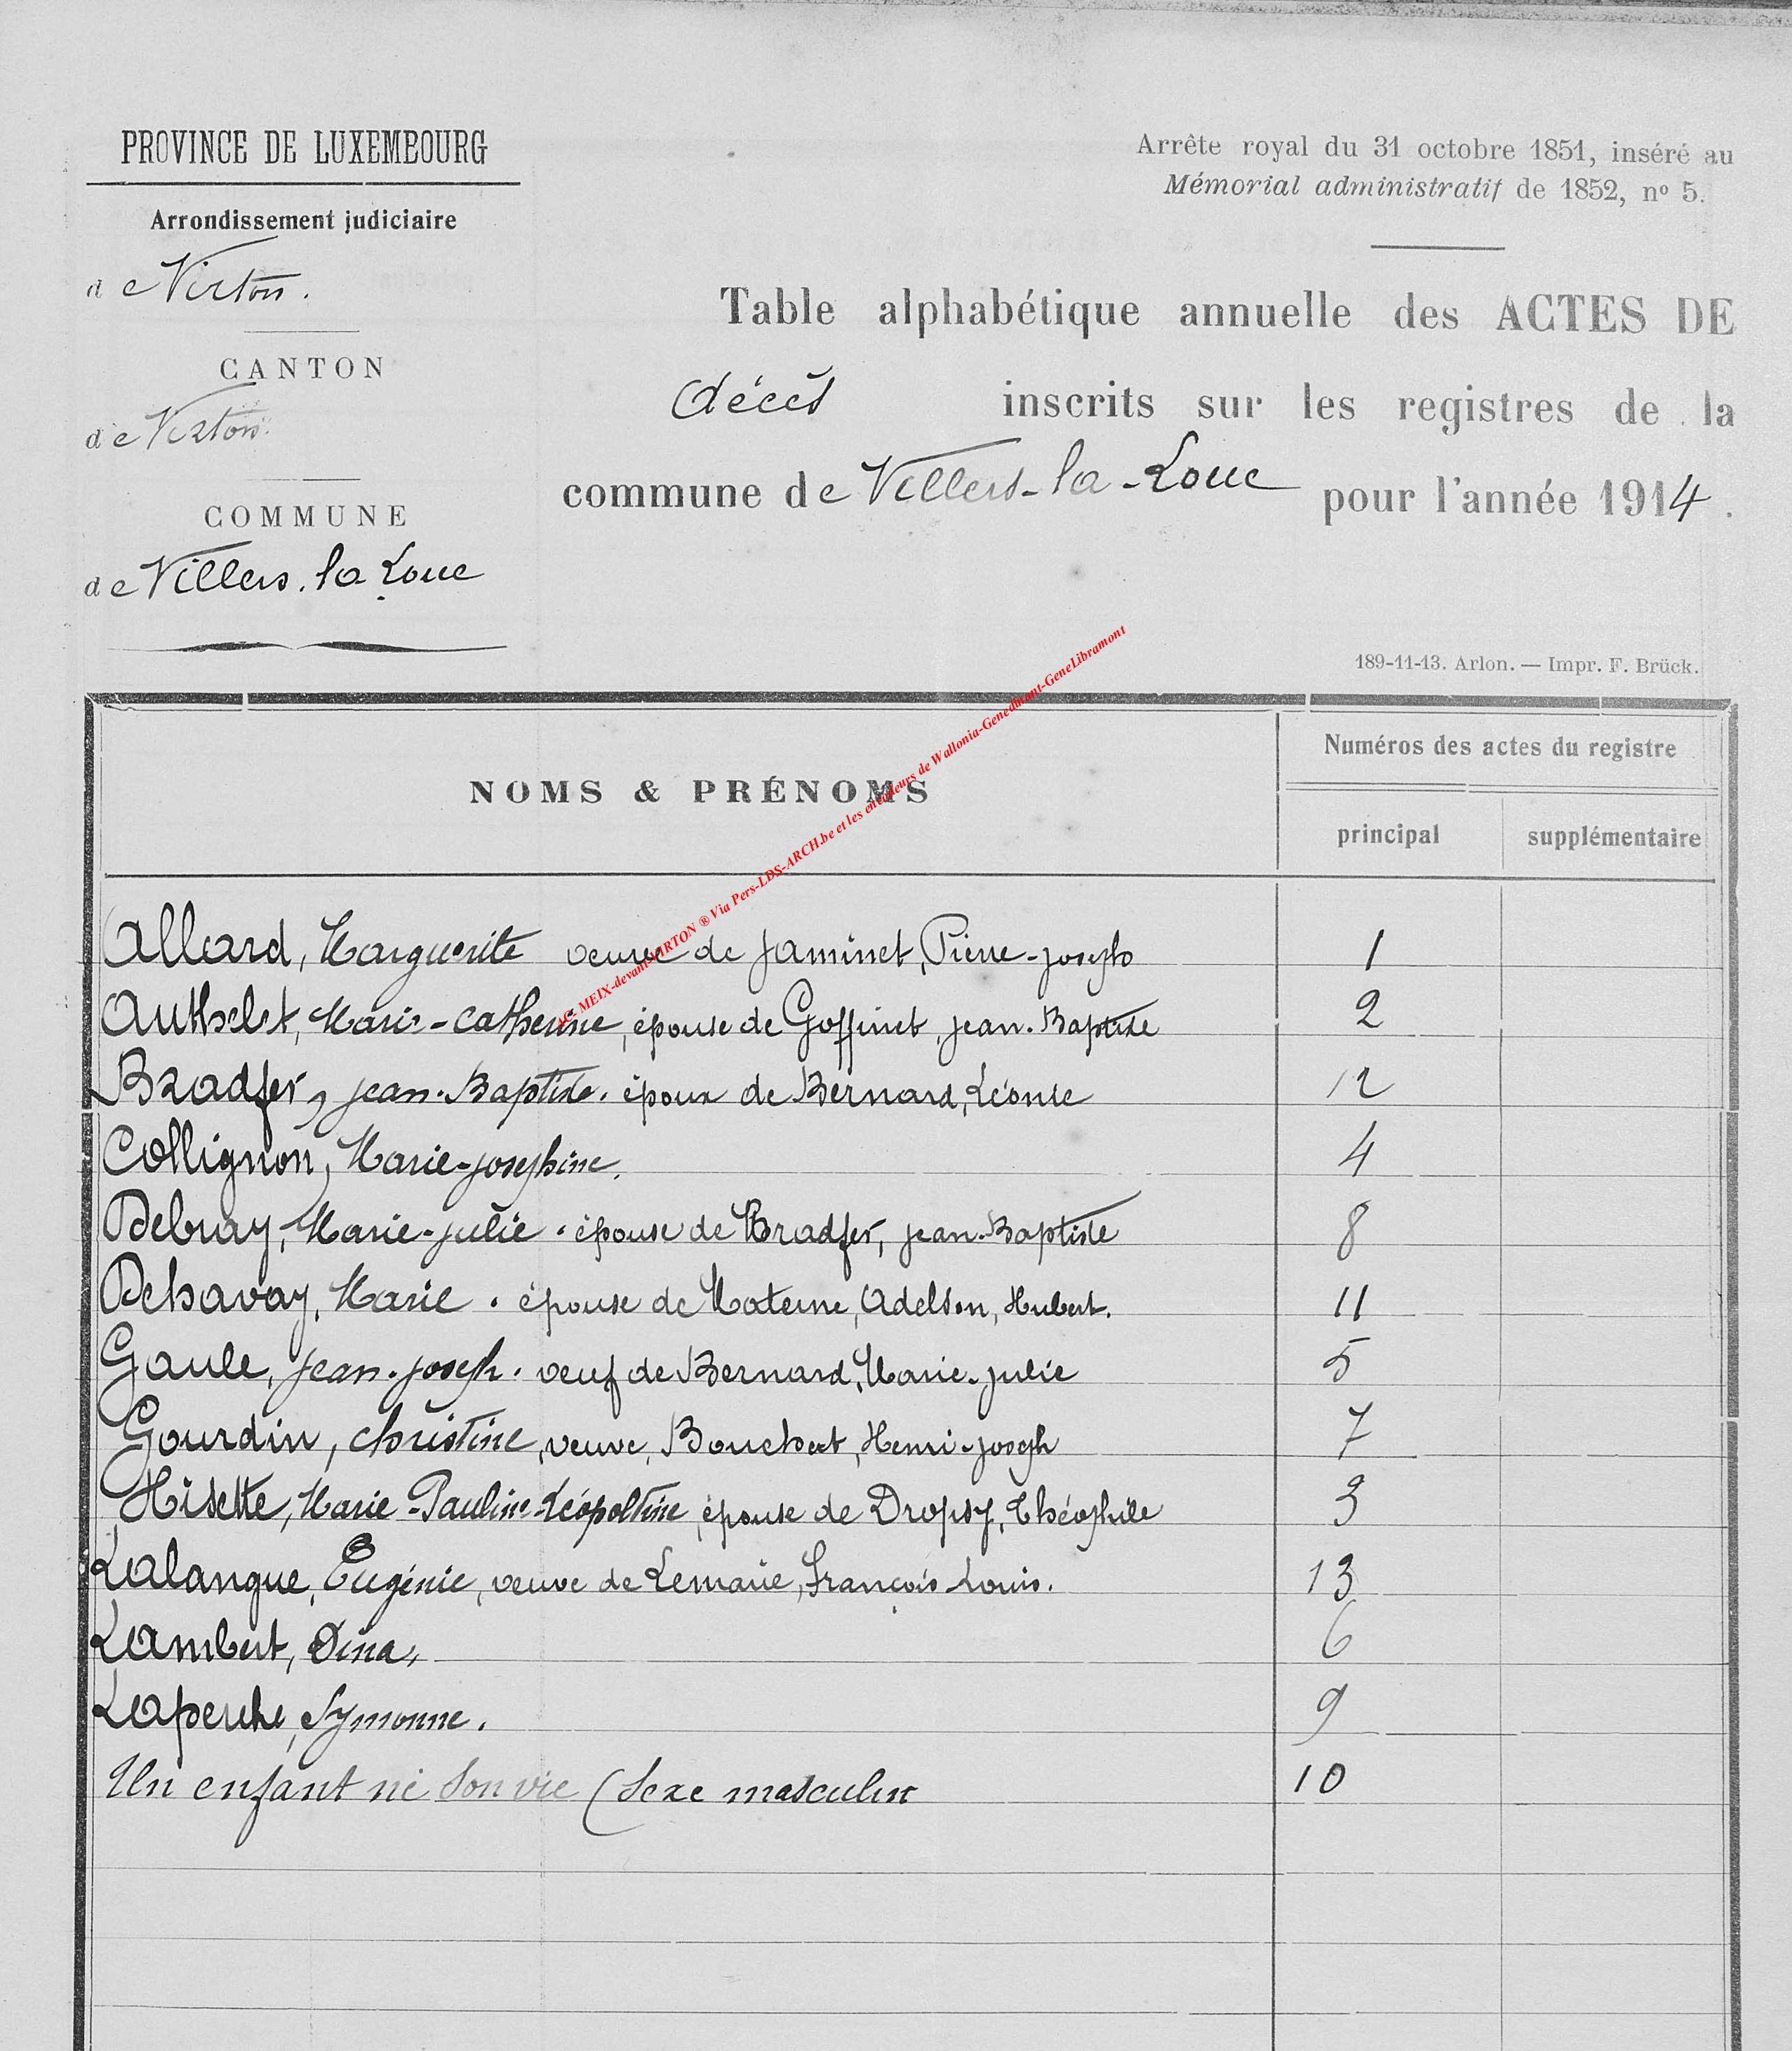 PROVINCE DE LUXEMBOURG
Arrondissement judiciaire
de Virton.
CANTON
de Virton.
COMMUNE
de Villers.la Loue
Arrête royal du 31 octobre 1851, inséré au
Mémorial administratif de 1852, nº 5.
Table alphabétique annuelle des ACTES DE
décès inscrits sur les registres de la
commune de Villers-la-Loue pour l'année 1914.
189-11-13. Arlon. — Impr. F. Brück.
NOMS & PRÉNOMS
Numéros des actes du registre
principal supplémentaire
Allard, Marguerite veuve de Jaminet, Pierre-Joseph 1
Authelet, Marie-Catherine, épouse de Goffinet, Jean.Baptiste 2
Bradfer, Jean.Baptiste. époux de Bernard, Léonie 12
Collignon, Marie-Joséphine. 4
Debray, Marie-Julie. épouse de Bradfer, Jean-Baptiste 8
Dehavay, Marie. épouse de Materne, Adelson, Hubert. 11
Gaule, Jean.Joseph. veuf de Bernard, Marie-Julie 5
Gourdin, Christine, veuve, Bouchat, Henri-Joseph 7
Hisette, Marie-Pauline-Léopoltine, épouse de Dropsy, Théophile 3
Lalangue, Eugénie, veuve de Lemaire, François-Louis. 13
Lambert, Dina, 6
Laperche, Symonne. 9
Un enfant né son vie (sexe masculin 10
MEIX-devant-VIRTON ® Via Pers-LDS-ARCH.be et les encodeurs de Wallonia-Genedinant-GeneLibramont